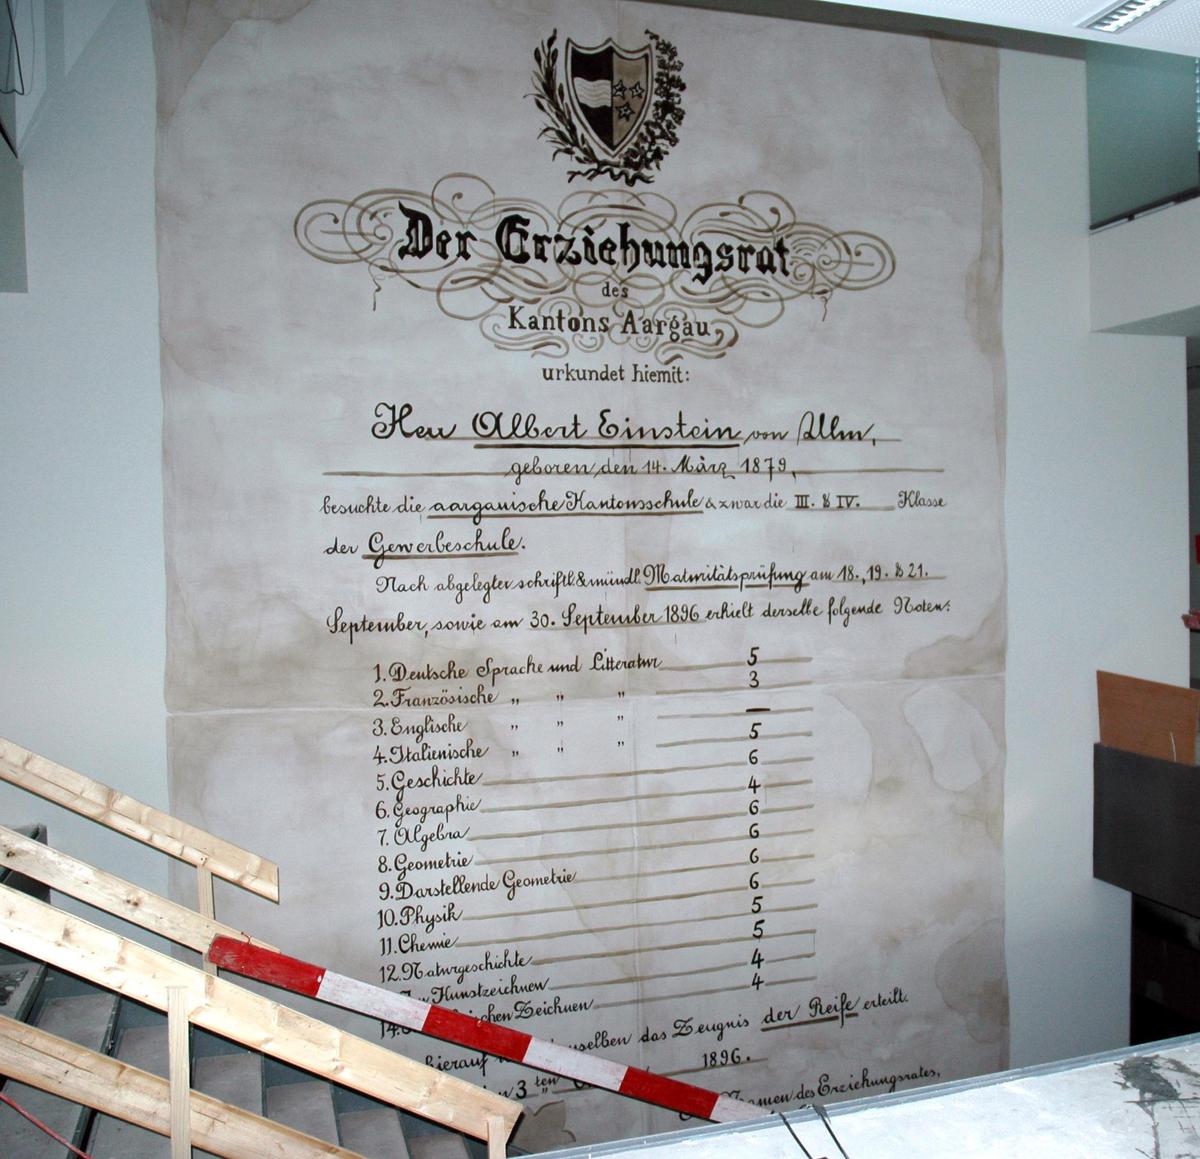 Der Erziehungsrat
des
Kantons Aargau
urkundet hiemit:
Herr Albert Einstein von Ulm,
geboren den 14. März 1879,
besuchte die aargauische Kantonsschule & zwar die III. & IV. Klasse
der Gewerbeschule.
Nach abgelegter schriftl. & mündl. Maturitätsprüfung am 18., 19. & 21.
September, sowie am 30. September 1896 erhielt derselbe folgende Noten:
1. Deutsche Sprache und Litteratur 5
2. Französische „ „ „ 3
3. Englische „ „ „ —
4. Italienische „ „ „ 5
5. Geschichte 6
6. Geographie 4
7. Algebra 6
8. Geometrie 6
9. Darstellende Geometrie 6
10. Physik 6
11. Chemie 5
12. Naturgeschichte 5
Kunstzeichnen 4
14. Zeichnen 4
hierauf das Zeugnis der Reife erteilt.
3ten 1896.
Namen des Erziehungsrates,